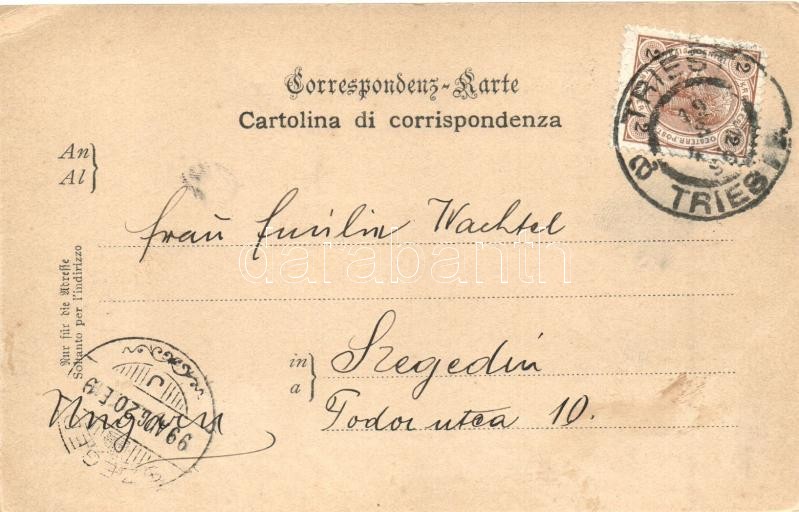 Correspondenz-Karte
Cartolina di corrispondenza
An
Al
Frau Emilie Wachtel
in
a
Szegedin
Fodor utca 10.
Ungarn
Nur für die Adresse
Soltanto per l'indirizzo
TRIEST
TRIEST
2
2
2
2
OESTERR. POST
99 AUG 20 E 9
darabanth